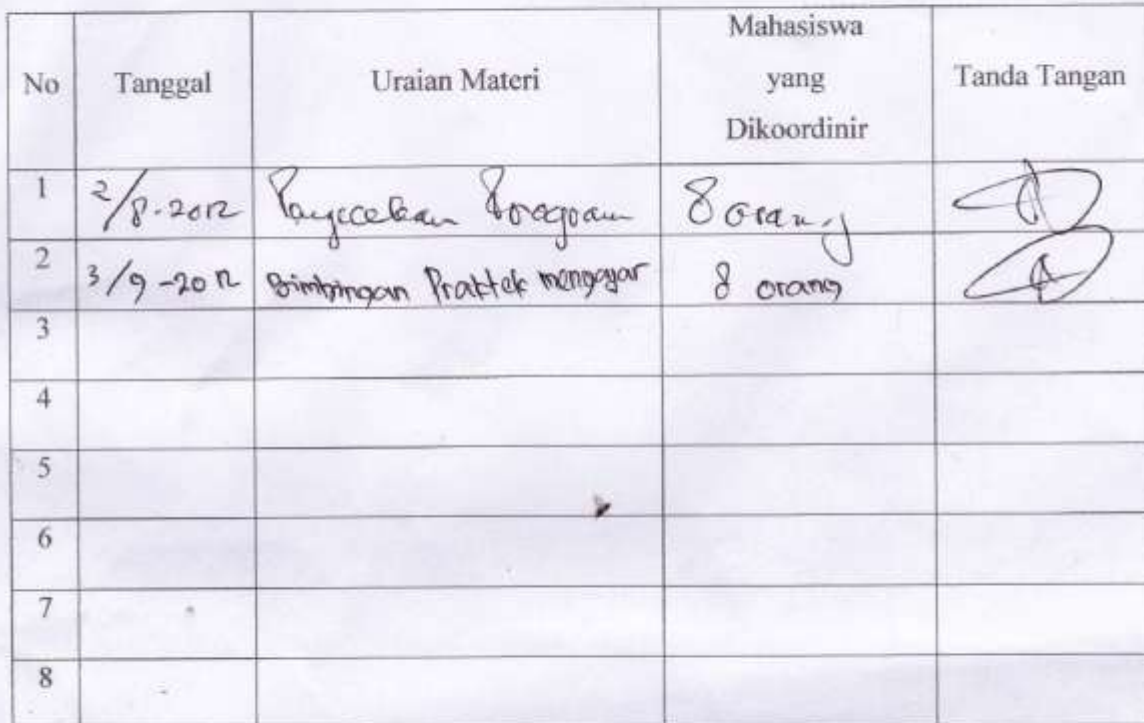 No Tanggal Uraian Materi Mahasiswa yang Dikoordinir Tanda Tangan
1 2/8-2012 Pengecekan Program 8 orang
2 3/9-2012 Bimbingan Praktek mengajar 8 orang
3
4
5
6
7
8